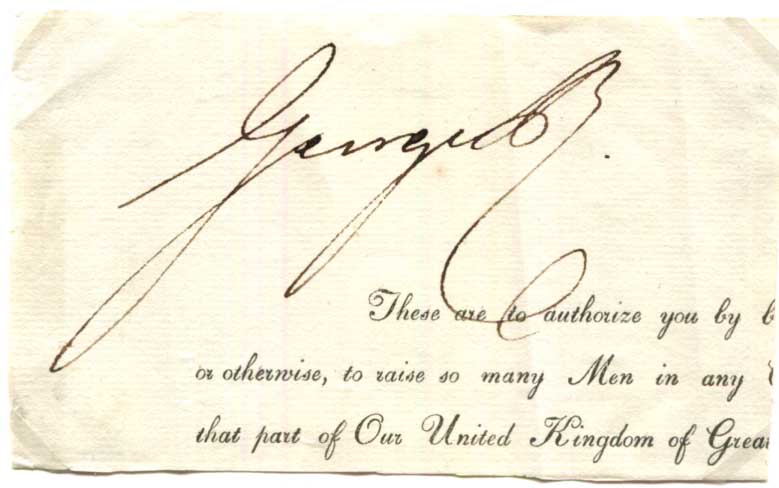 George R.
These are to authorize you by b
or otherwise, to raise so many Men in any
that part of Our United Kingdom of Grea